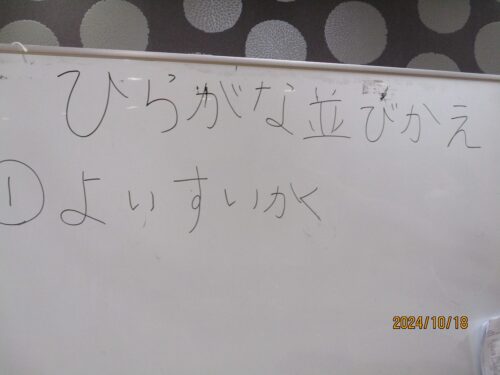 ひらがな並びかえ
① よいすいかく
2024/10/18